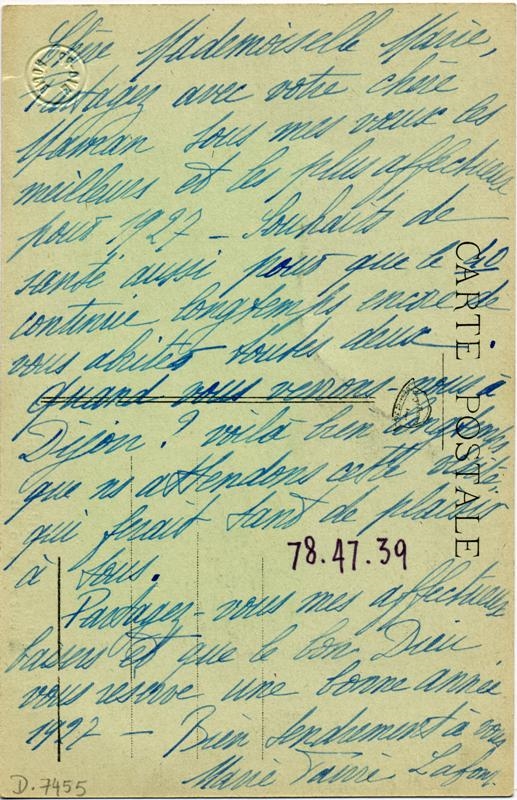 Chère Mademoiselle Marie,
Partagez avec votre chère
Maman tous mes vœux les
meilleurs et les plus affectueux
pour 1927 - Souhaits de
santé aussi pour que le 40
continue longtemps encore de
vous abriter toutes deux.
Quand vous verrons-nous à
Dijon? voilà bien longtemps
que ns attendons cette
qui ferait tant de plaisir
à tous.
Partagez-vous mes affectueux
baisers et que le bon Dieu
vous reserve une bonne année
1927 - Bien tendrement à vous
Marie Lafon
CARTE POSTALE
78.47.39
D.7455